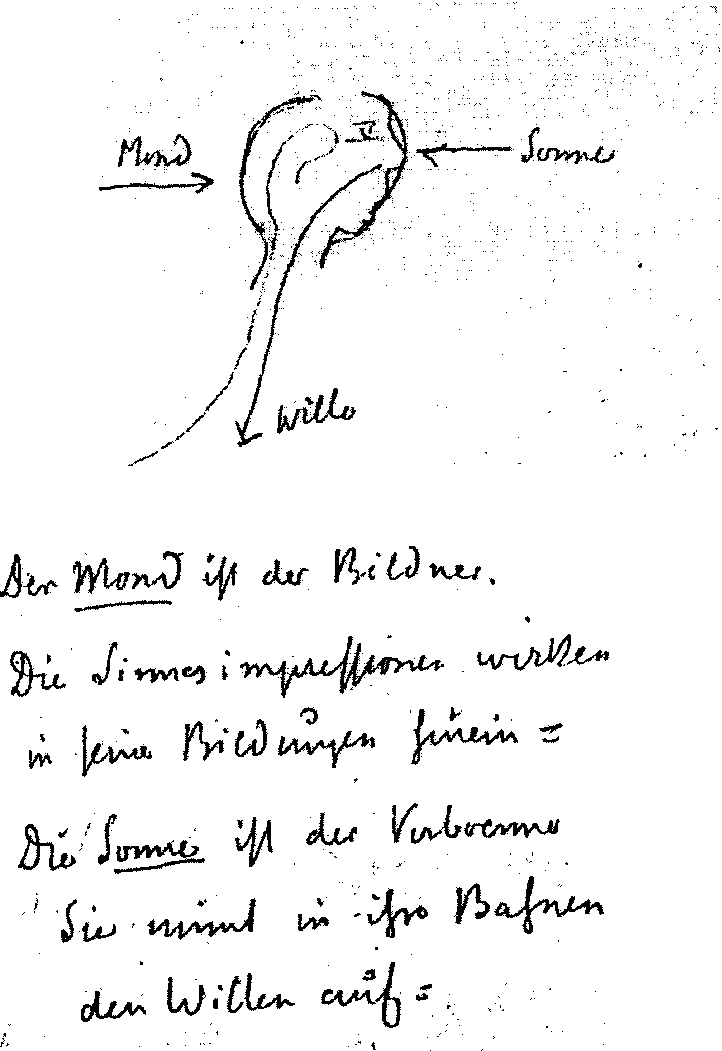 Mond
Sonne
Wille
Der Mond ist der Bildner.
Die Sinnesimpressionen wirken
in seine Bildungen hinein =
Die Sonne ist der Verbrenner
Sie nimmt in ihre Bahnen
den Willen auf =